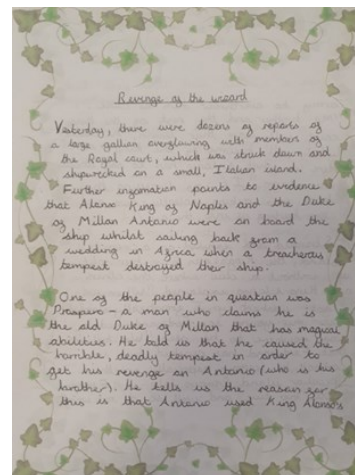 Revenge of the wizard
Yesterday, there were dozens of reports of
a large gallian overflowing with members of
the Royal court, which was struck down and
shipwrecked on a small, Italian island.
Further infomation points to evidence
that Alonso King of Naples and the Duke
of Millan Antonio were on board the
ship whilst sailing back from a
wedding in Africa when a treacherous
tempest destroyed their ship.
One of the people in question was
Prospero - a man who claims he is
the old Duke of Millan that has magical
abilities. He told us that he caused the
horrible, deadly tempest in order to
get his revenge on Antonio (who is his
brother). He tells us the reason for
this is that Antonio used King Alonso's